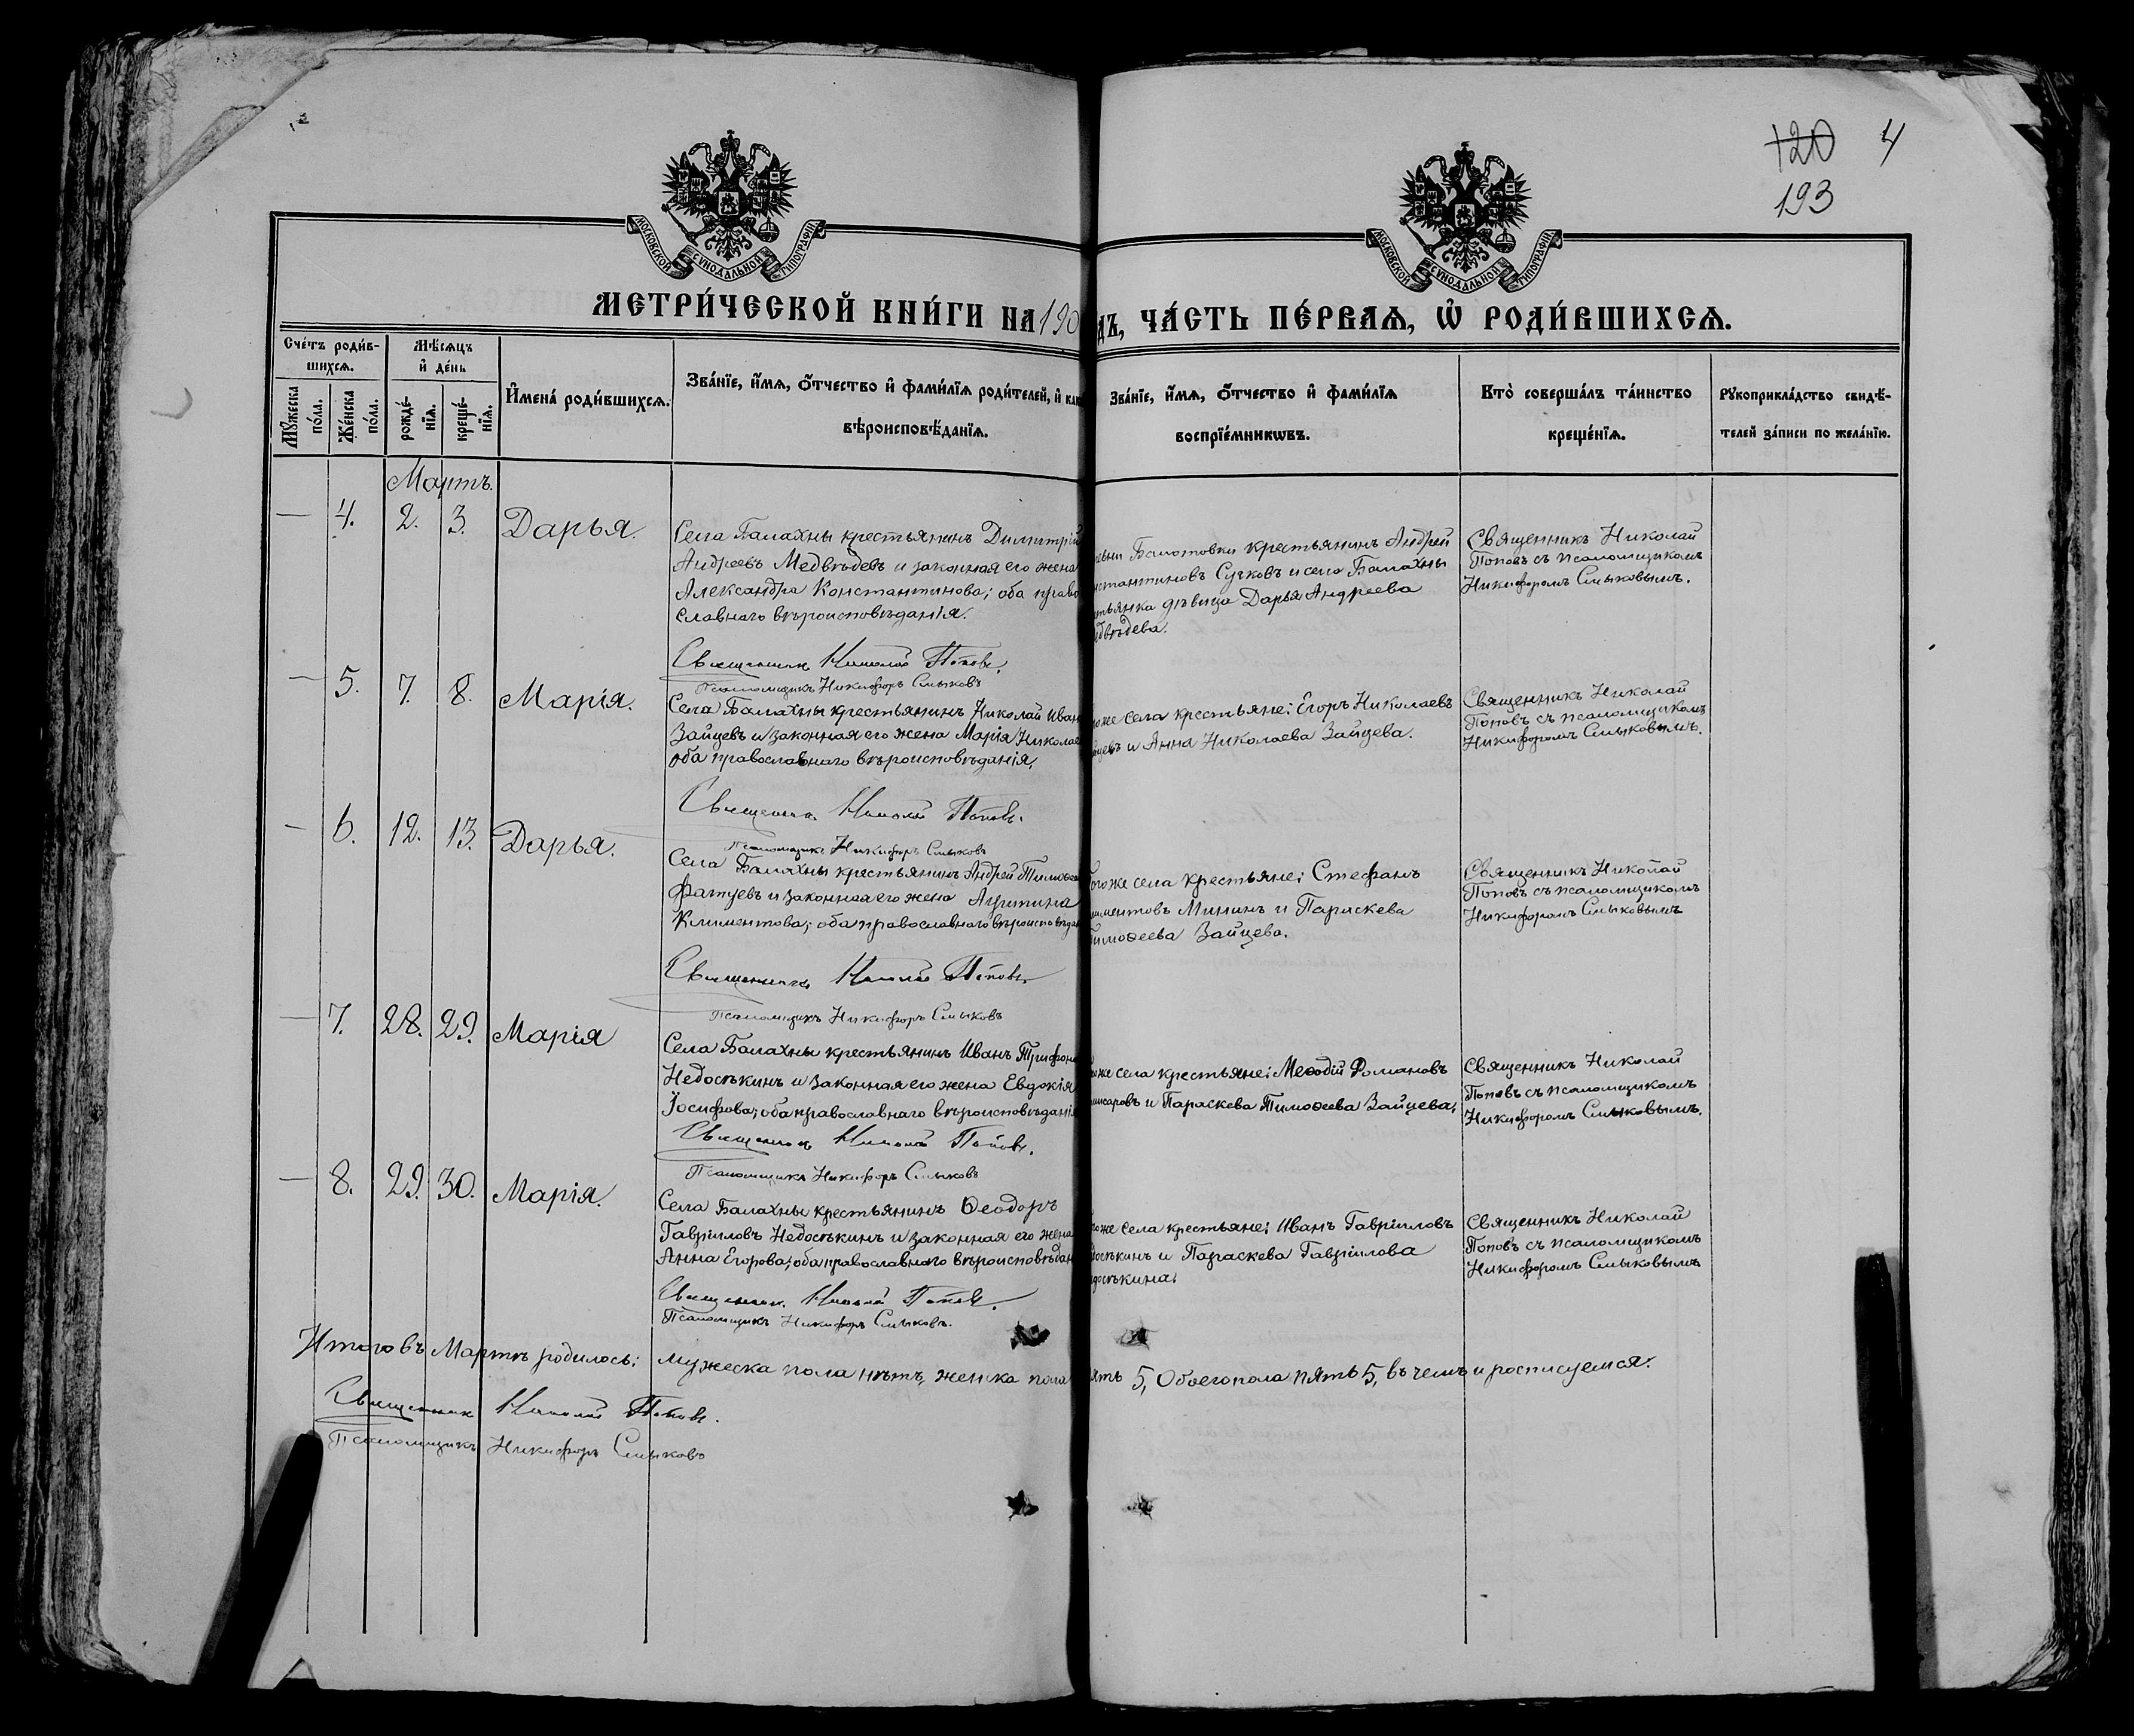 120 4
193
МОСКОВСКОЙ СѴНОДАЛЬНОЙ ТИПОГРАФІИ
МОСКОВСКОЙ СѴНОДАЛЬНОЙ ТИПОГРАФІИ
МЕТРИ́ЧЕСКОЙ КНИ́ГИ НА 190
дъ, ЧА́СТЬ ПЕ́РВАЯ, Ѡ РОДИ́ВШИХСЯ.
Сче́тъ роди́в-
шихся.
Мѣ́сяцъ
и҆ де́нь
Мꙋ́жеска по́ла.
Же́нска по́ла.
рожде́-нїя.
креще́-нїя.
И҆мена̀ роди́вшихся.
Зва́нїе, и҆́мя, ѻ҆́тчество и҆ фами́лїя роди́телей, и҆ как
вѣроисповѣ́данїя.
Зва́нїе, и҆́мя, ѻ҆́тчество и҆ фами́лїя
воспрїе́мникѡвъ.
Кто̀ соверша́лъ та́инство
креще́нїя.
Рꙋкоприкла́дство свидѣ́-
телей за́писи по жела́нїю.
Мартъ.
— 4. 2. 3. Дарья.
Села Балахны крестьянинъ Димитрій
Андреевъ Медвѣдевъ и законная его жена
Александра Константинова; оба право
славнаго вѣроисповѣданія.
Священникъ Николай Поповъ.
Псаломщикъ Никифоръ Смыковъ
вни Балотовки крестьянинъ Андрей
стантиновъ Сучковъ и села Балахны
стьянка дѣвица Дарья Андреева
едвѣдева.
Священникъ Николай
Поповъ съ псаломщикомъ
Никифоромъ Смыковымъ.
— 5. 7. 8. Марія.
Села Балахны крестьянинъ Николай Иван
Зайцевъ и законная его жена Марія Николае
оба православнаго вѣроисповѣданія.
Священникъ Николай Поповъ.
Псаломщикъ Никифоръ Смыковъ
оже села крестьяне: Егоръ Николаевъ
йцевъ и Анна Николаева Зайцева.
Священникъ Николай
Поповъ съ псаломщикомъ
Никифоромъ Смыковымъ.
— 6. 12. 13. Дарья.
Села Балахны крестьянинъ Андрей Тимоѳее
Фатуевъ и законная его жена Агрипина
Климентова; оба православнаго вѣроисповѣдан
Священникъ Николай Поповъ.
Псаломщикъ Никифоръ Смыковъ
огоже села крестьяне: Стефанъ
лиментовъ Мининъ и Параскева
Тимоѳеева Зайцева.
Священникъ Николай
Поповъ съ псаломщикомъ
Никифоромъ Смыковымъ
— 7. 28. 29. Марія
Села Балахны крестьянинъ Иванъ Трифоно
Недосѣкинъ и законная его жена Евдокія
Іосифова; оба православнаго вѣроисповѣданія
Священникъ Николай Поповъ.
Псаломщикъ Никифоръ Смыковъ
оже села крестьяне: Меѳодій Романовъ
миссаровъ и Параскева Тимоѳеева Зайцева.
Священникъ Николай
Поповъ съ псаломщикомъ
Никифоромъ Смыковымъ.
— 8. 29. 30. Марія.
Села Балахны крестьянинъ Ѳеодоръ
Гавріиловъ Недосѣкинъ и законная его жена
Анна Егорова; оба православнаго вѣроисповѣдан
Священникъ Николай Поповъ.
Псаломщикъ Никифоръ Смыковъ.
оже села крестьяне: Иванъ Гавріиловъ
досѣкинъ и Параскева Гавріилова
досѣкина.
Священникъ Николай
Поповъ съ псаломщикомъ
Никифоромъ Смыковымъ
Итого въ Мартѣ родилось: мужеска пола нѣтъ, женска пола ять 5, Обоего пола пять 5, въ чемъ и росписуемся.
Священникъ Николай Поповъ.
Псаломщикъ Никифоръ Смыковъ